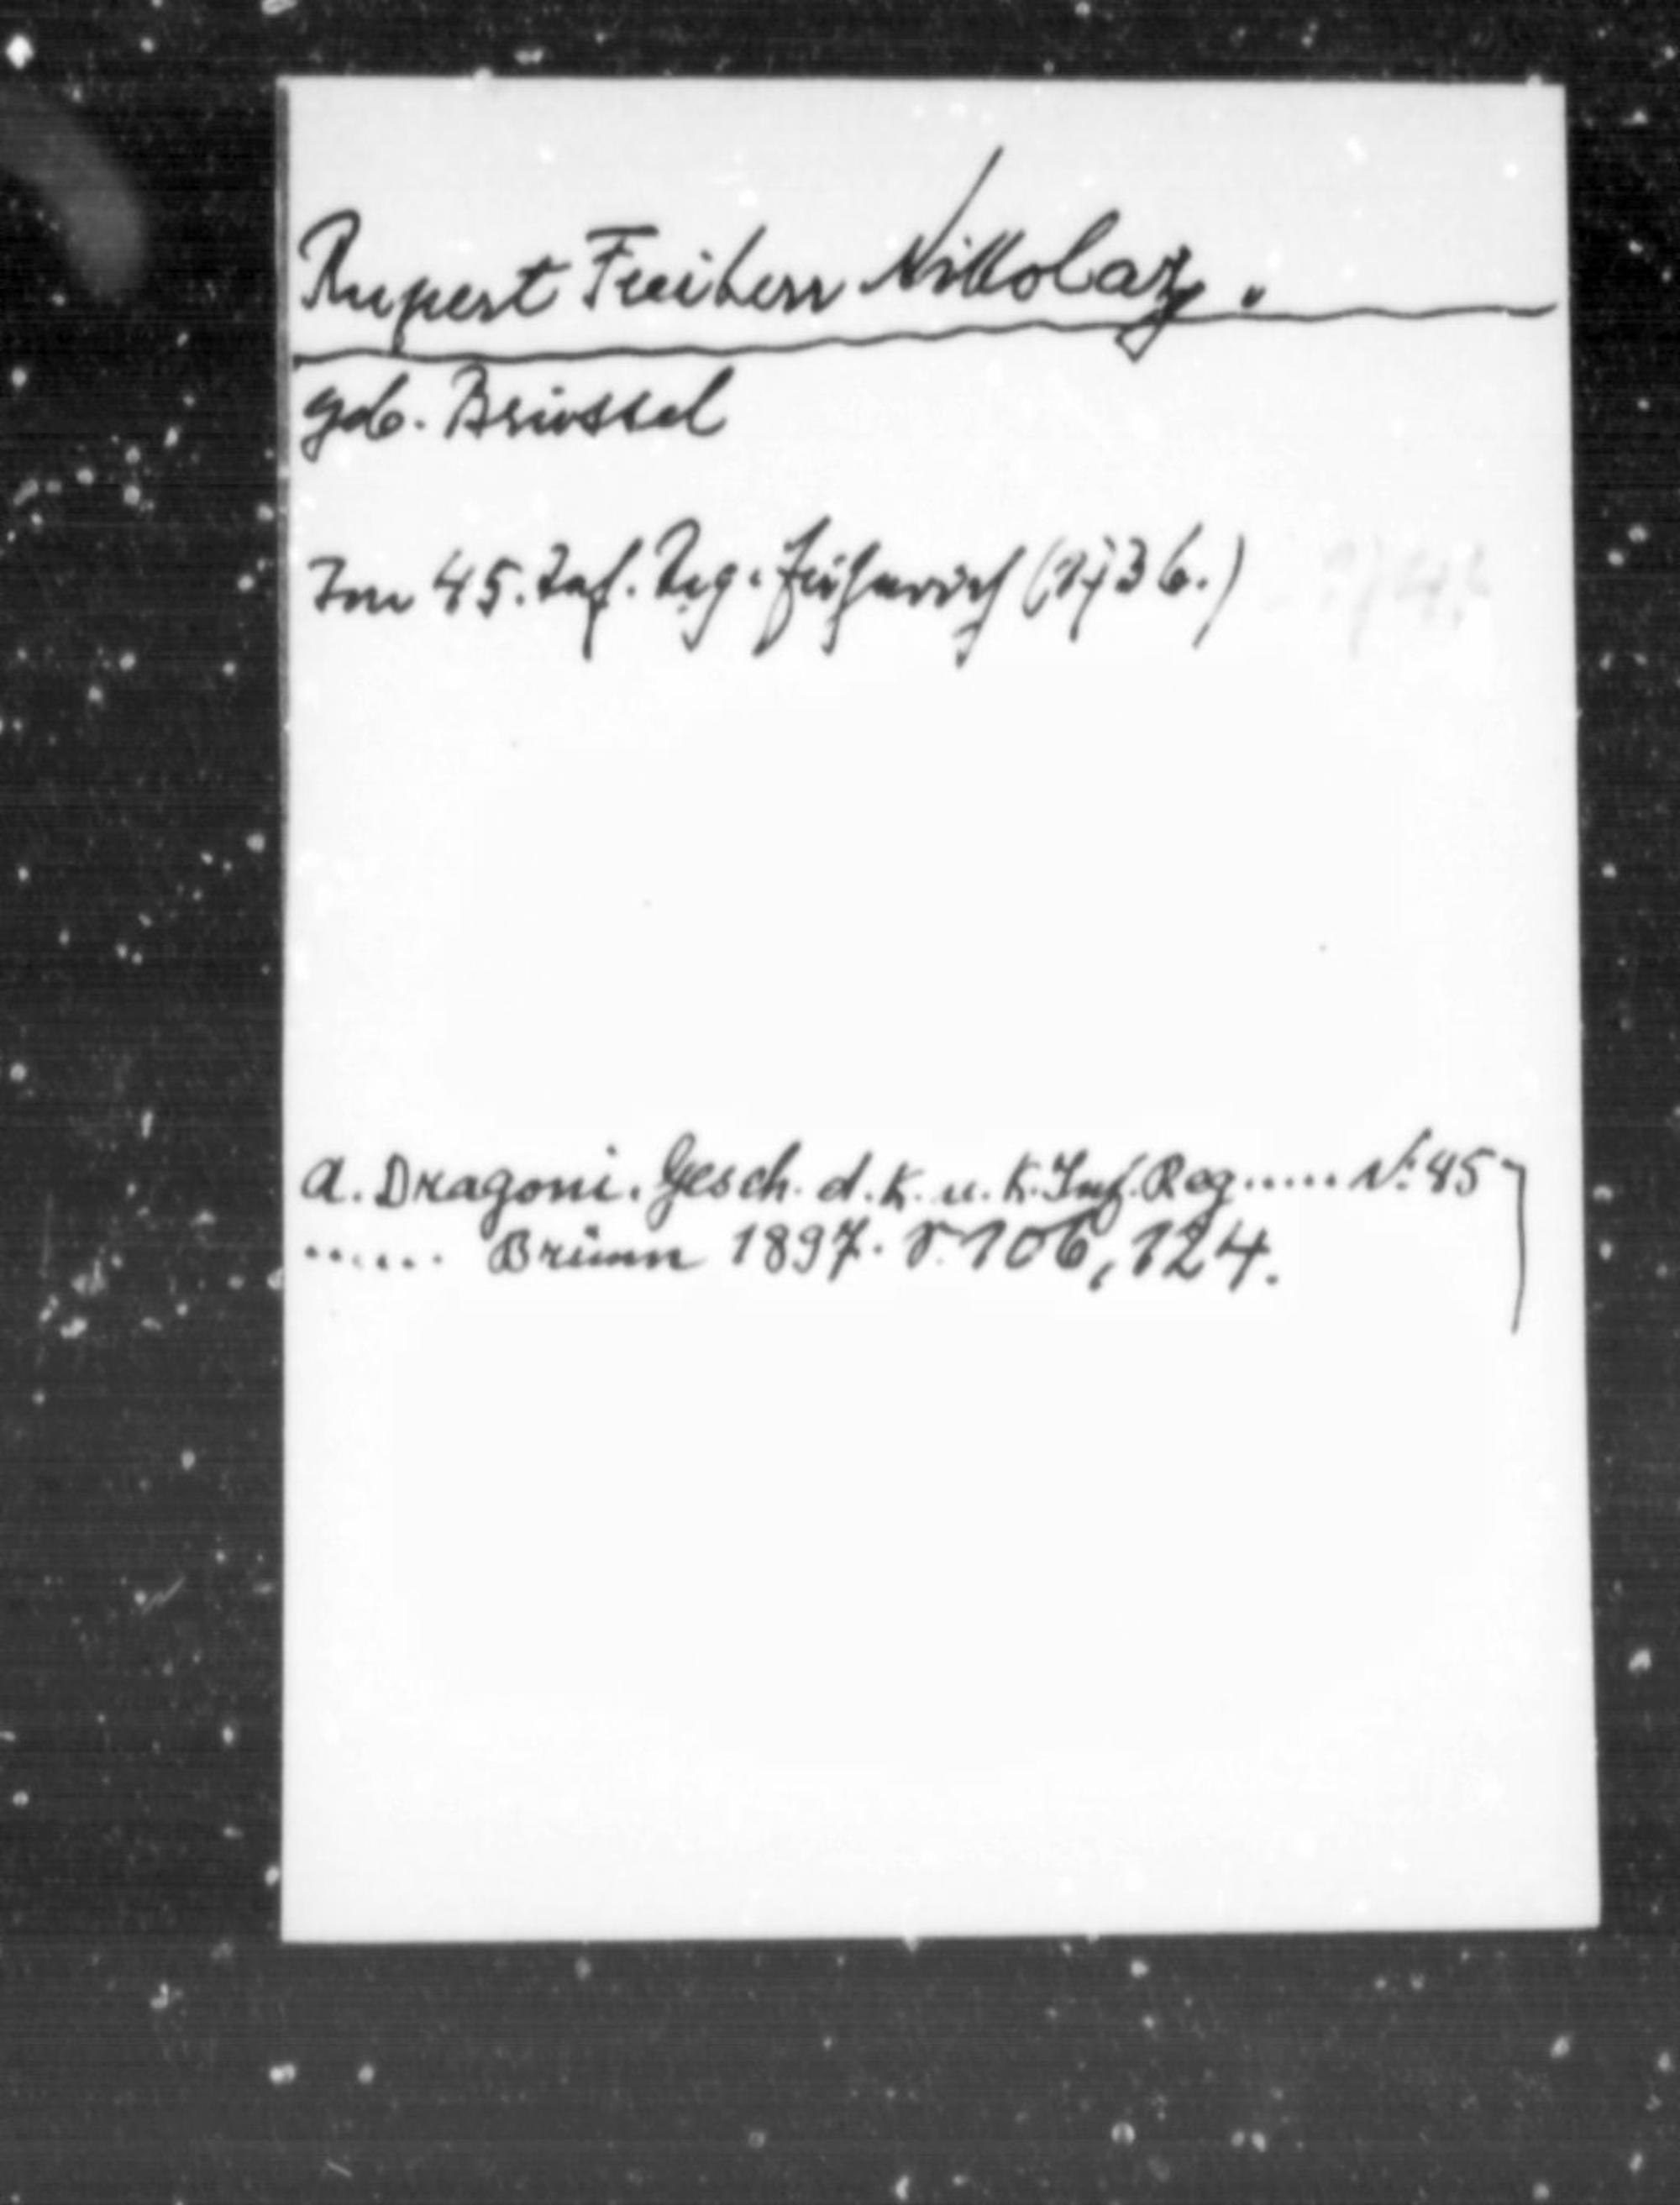 Rupert Freiherr Nikolaz.
geb. Brüssel
Im 45. Inf. Reg. Fähnrich (1736.)
A. Dragoni. Gesch. d. k. u. k. Inf. Reg..... N: 45
...... Brünn 1897. S. 106, 124.